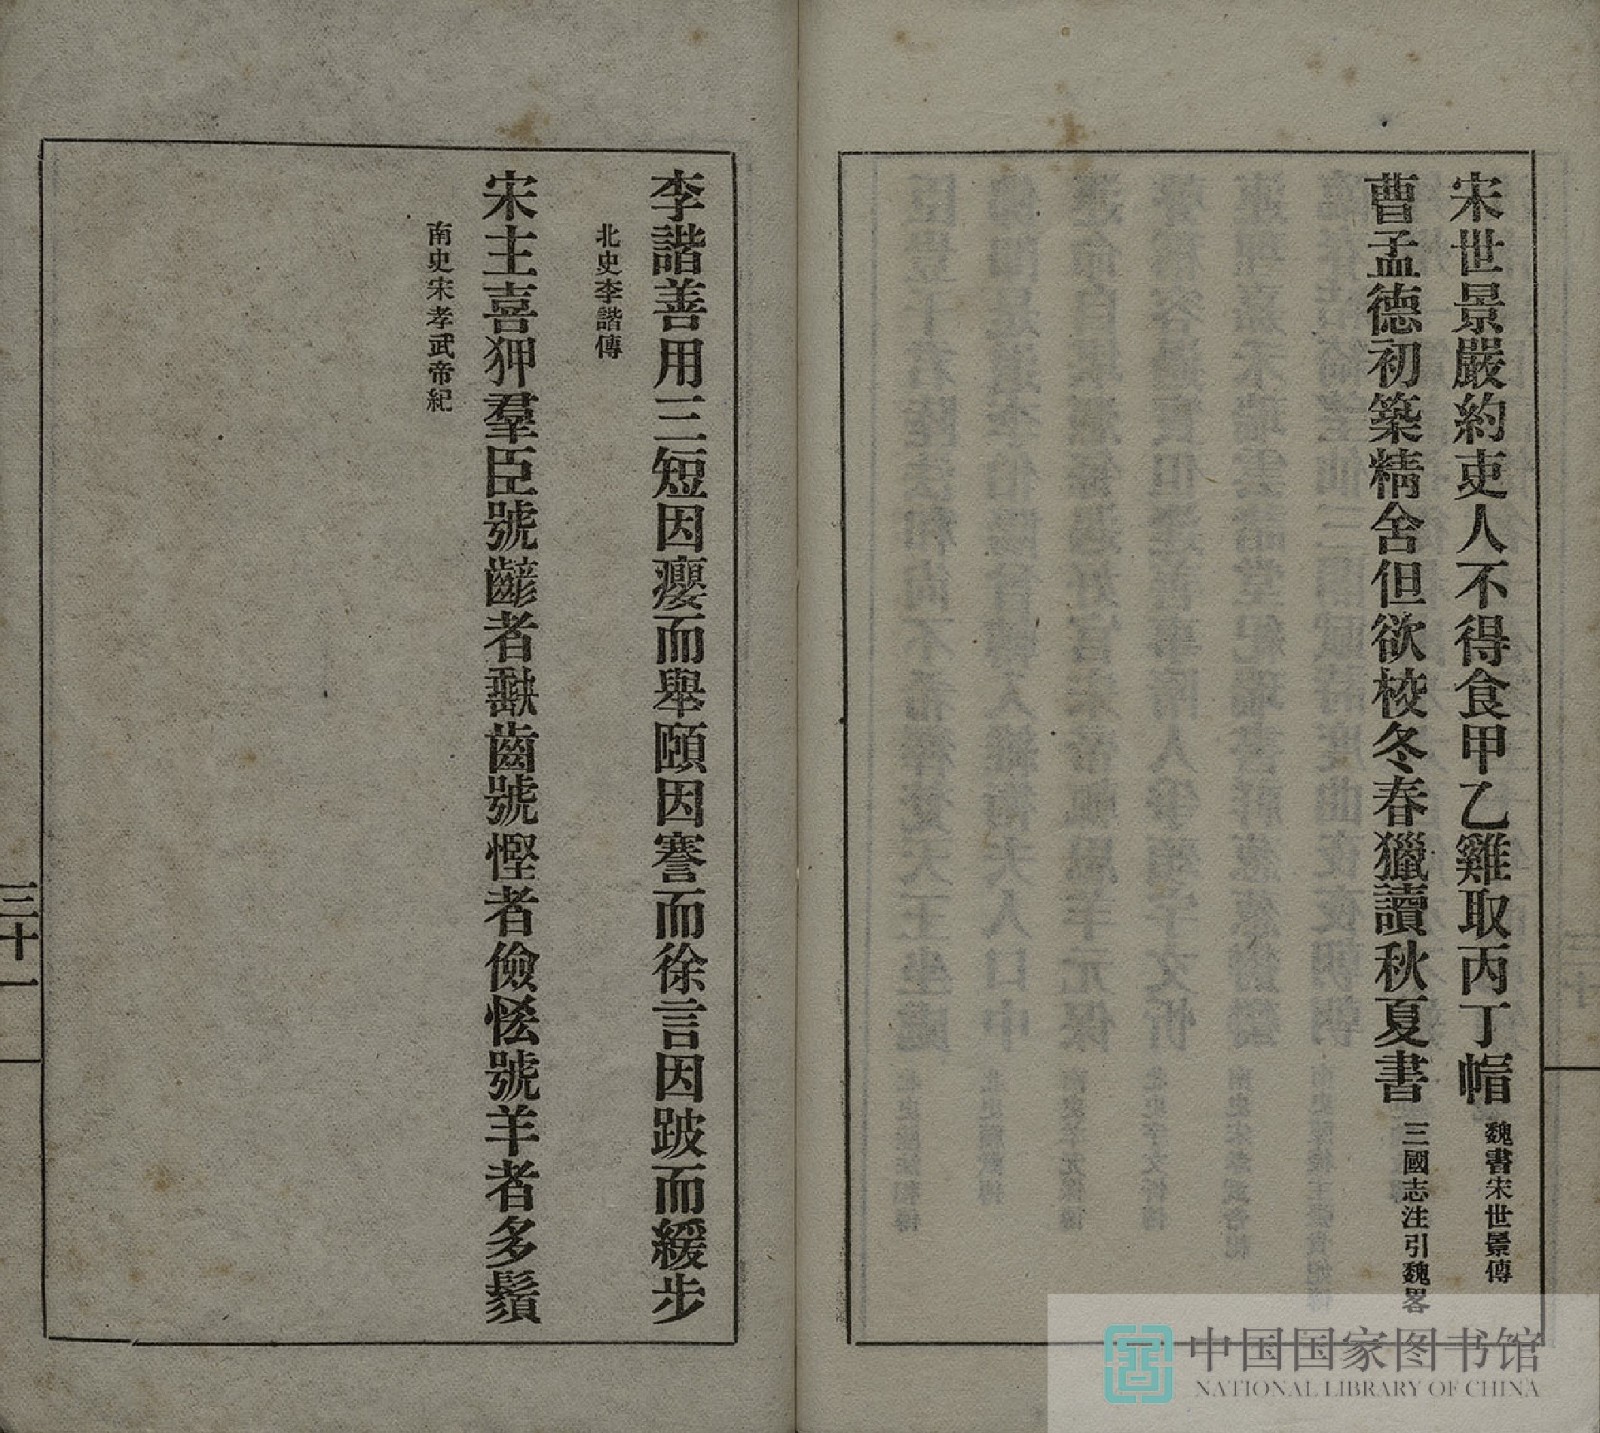 宋世景嚴約吏人不得食甲乙雞取丙丁帽 魏書宋世景傳
曹孟德初築精舍但欲校冬春獵讀秋夏書 三國志注引魏畧
李諧善用三短因癭而舉頤因謇而徐言因跛而緩步
北史李諧傳
宋主喜狎羣臣號齴者齞齒號慳者儉恡號羊者多鬚
南史宋孝武帝紀
三十一
中国国家图书馆
NATIONAL LIBRARY OF CHINA